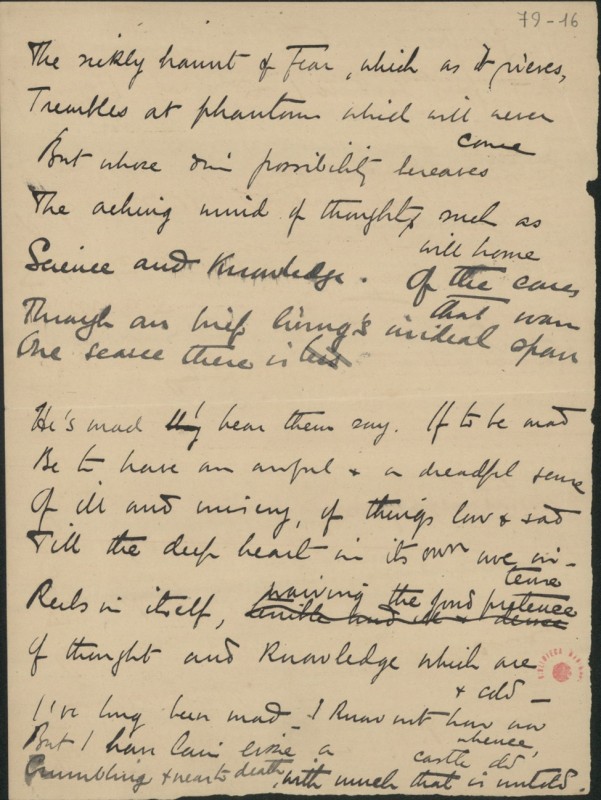 79-16
The sickly haunt of Fear, which as it grieves,
Trembles at phantoms which will never come
But whose dim possibility bereaves
The aching mind of thoughts such as
will home
Science and Knowledge. Of the cares
that wan
Through our brief living's ordeal span
One scarce there is
He's mad I hear them say. If to be mad
Be to have an awful & a dreadful sense
Of ill and misery, of things low & sad
Till the deep heart in its own awe in-
tense
Reels in itself, the fond pretence
terrible and
Of thought and Knowledge which are
& cold –
I've long been mad – I know not how nor
whence,
But I have lain like a castle old
Crumbling & near to death, with much that is untold.